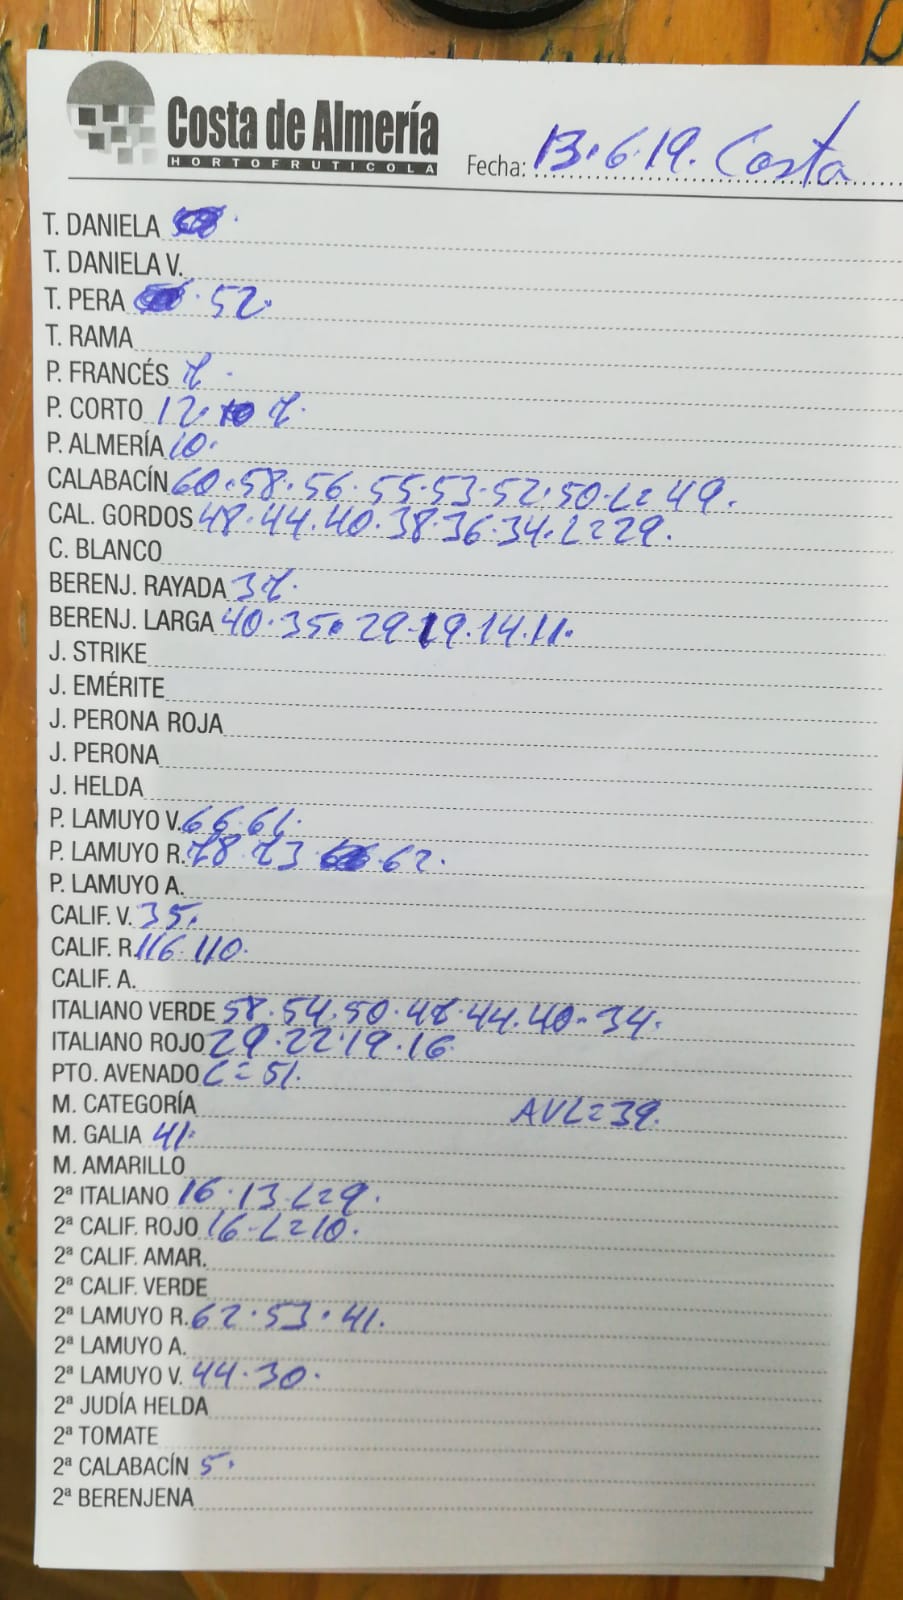 Costa de Almería
HORTOFRUTICOLA
Fecha: 13.6.19. Costa
T. DANIELA
T. DANIELA V.
T. PERA 52.
T. RAMA
P. FRANCÉS 7.
P. CORTO 12. 10 7.
P. ALMERÍA 10.
CALABACÍN 60.58.56.55.53.52.50.L=49.
CAL. GORDOS 48.44.40.38.36.34.L=29.
C. BLANCO
BERENJ. RAYADA 37.
BERENJ. LARGA 40.35.29.19.14.11.
J. STRIKE
J. EMÉRITE
J. PERONA ROJA
J. PERONA
J. HELDA
P. LAMUYO V. 66.61.
P. LAMUYO R. 78.73 62.
P. LAMUYO A.
CALIF. V. 35.
CALIF. R. 116.110.
CALIF. A.
ITALIANO VERDE 58.54.50.48.44.40.34.
ITALIANO ROJO 29.22.19.16
PTO. AVENADO L=51.
M. CATEGORÍA AVL=39.
M. GALIA 41.
M. AMARILLO
2ª ITALIANO 16.13.L=9.
2ª CALIF. ROJO 16-L=10.
2ª CALIF. AMAR.
2ª CALIF. VERDE
2ª LAMUYO R. 62.53.41.
2ª LAMUYO A.
2ª LAMUYO V. 44.30.
2ª JUDÍA HELDA
2ª TOMATE
2ª CALABACÍN 5.
2ª BERENJENA